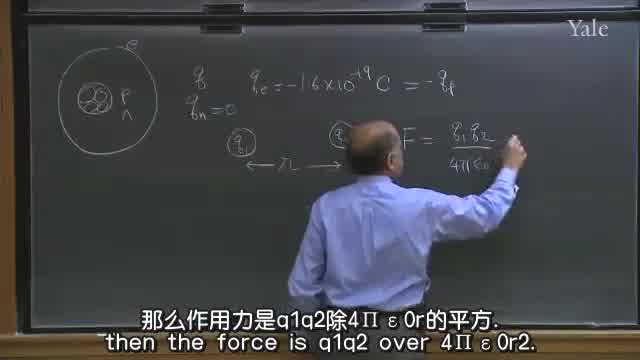 Yale
e
q qe = -1.6 x 10^-19 C = -qp
P
n
qn = 0
q1 q F = q1 q2
r 4π ε0
那么作用力是q1q2除4Π ε0r的平方.
then the force is q1q2 over 4Π ε0r2.